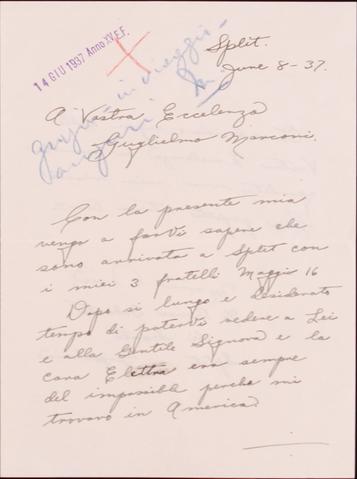 14 GIU 1937 Anno XV.E.F.
Split.
June 8-37.
in viaggio
A Vostra Eccelenza
Guglielmo Marconi.
Con la presente mia
vengo a farvi sapere che
sono arrivata a Split con
i miei 3 fratelli Maggio 16
Dopo si lungo e desiderato
tempo di potervi vedere a Lei
e alla Gentile Signora e la
cara Elettra era sempre
del impossible perche mi
trovavo in America.